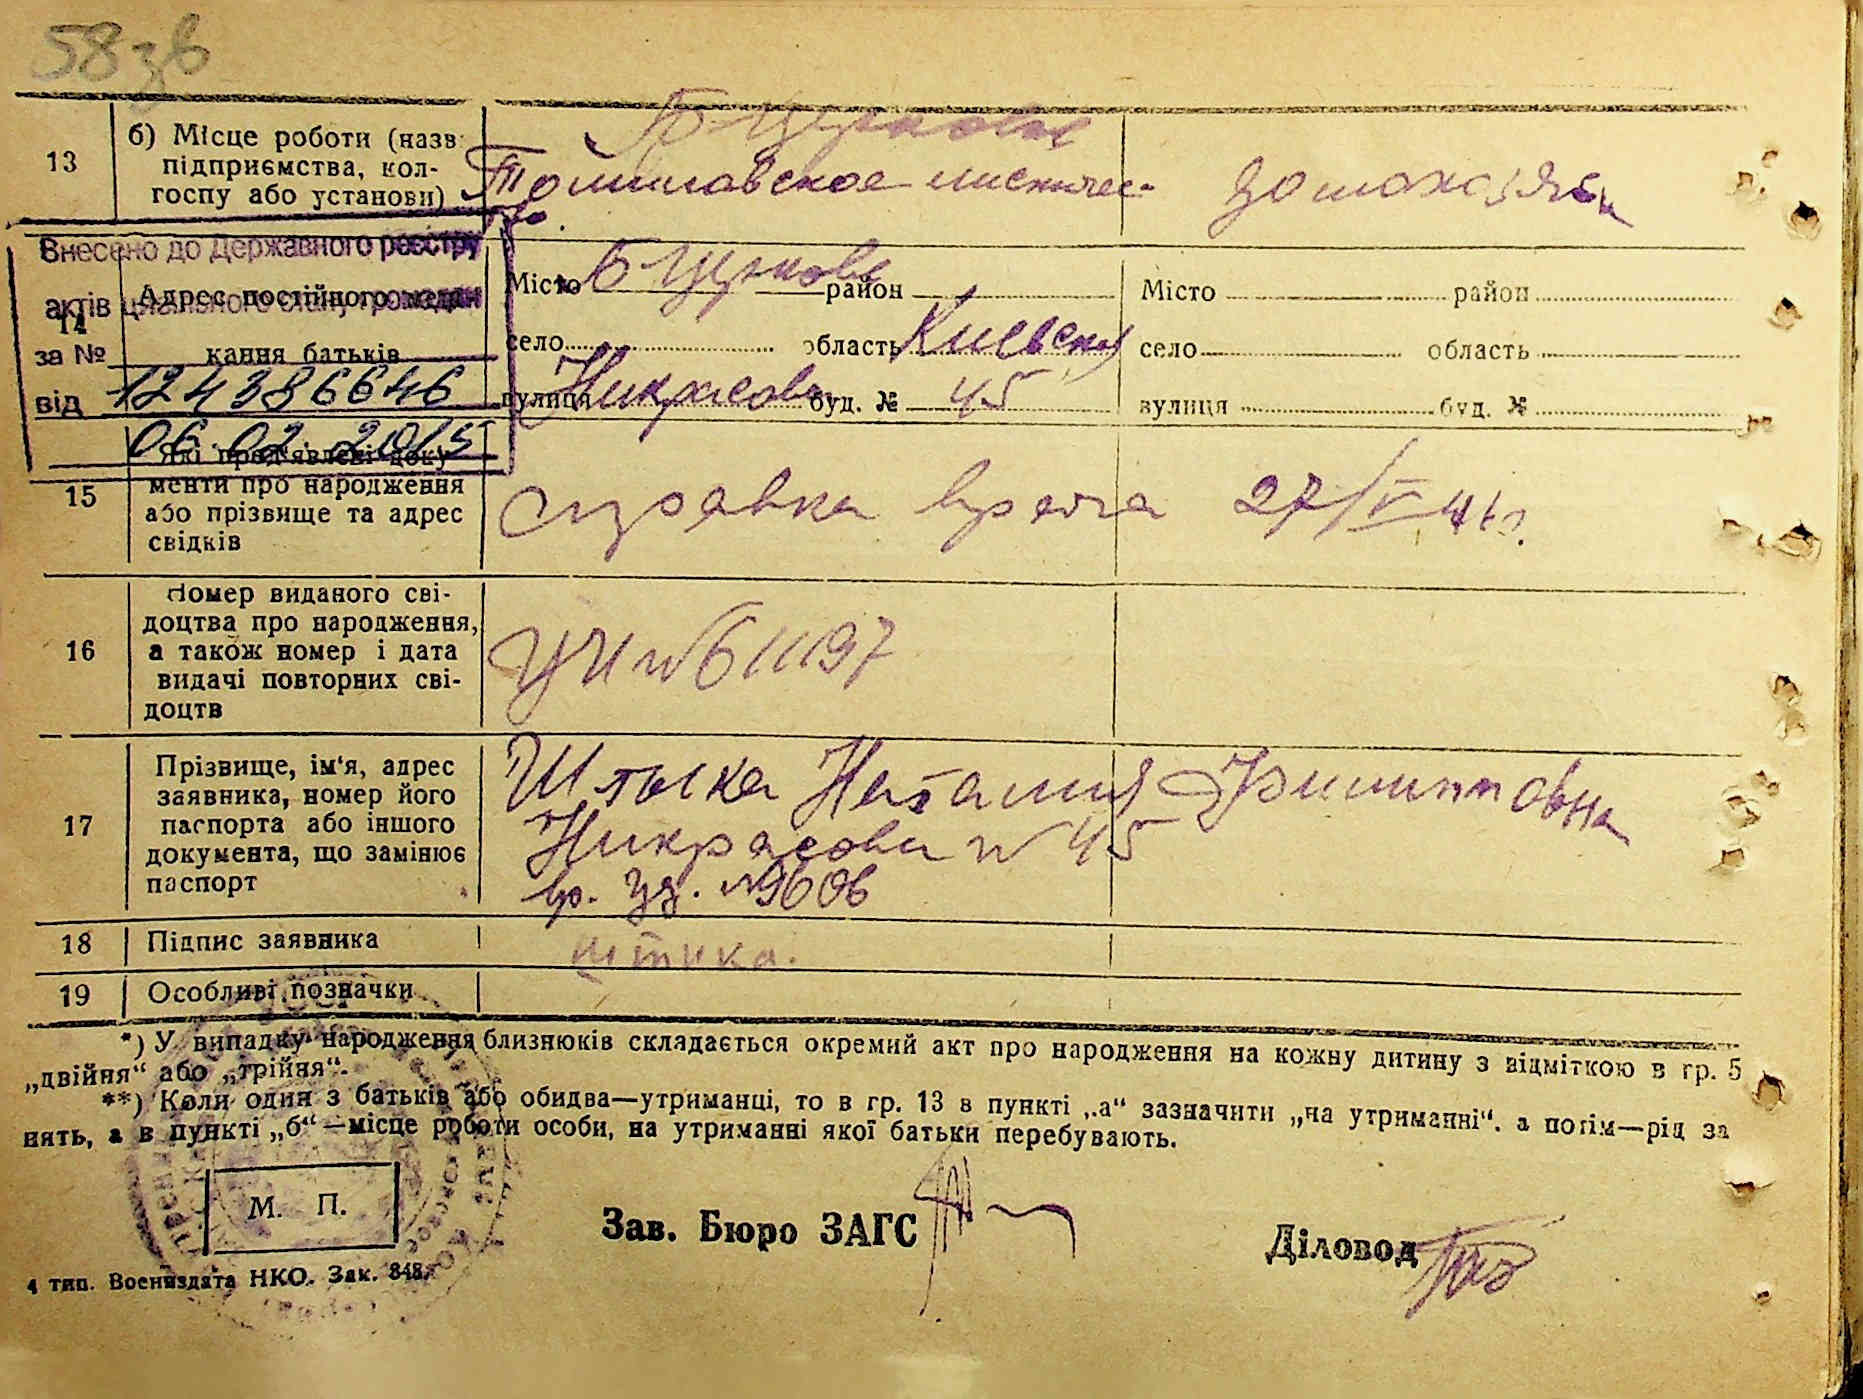 58 зв
13
б) Місце роботи (назв
підприємства, кол-
госпу або установи)
Б Церковь
домохозяйка
Внесено до Державного реєстру
актів цивільного стану громадян
за №
124386646
від
06.02.2015
14
Адрес постійного меш-
кання батьків
Місто Б Церковь район
село область Киевская
вулиця Никрасова буд. № 45
Місто район
село область
вулиця буд. №
15
Які пред'явлені доку-
менти про народження
або прізвище та адрес
свідків
Справка врача 27/V 46г.
16
Номер виданого сві-
доцтва про народження,
а також номер і дата
видачі повторних сві-
доцтв
№ 611197
17
Прізвище, ім'я, адрес
заявника, номер його
паспорта або іншого
документа, що замінює
паспорт
Наталия Филипповна
Никрасова № 45
вр. уд. № 9606
18
Підпис заявника
19
Особливі позначки
*) У випадку народження близнюків складається окремий акт про народження на кожну дитину з відміткою в гр. 5
„двійня“ або „трійня“.
**) Коли один з батьків або обидва—утриманці, то в гр. 13 в пункті „а“ зазначити „на утриманні“, а потім—рід за
нять, а в пункті „б“—місце роботи особи, на утриманні якої батьки перебувають.
М. П.
Зав. Бюро ЗАГС
Діловод
4 тип. Воениздата НКО. Зак. 848.